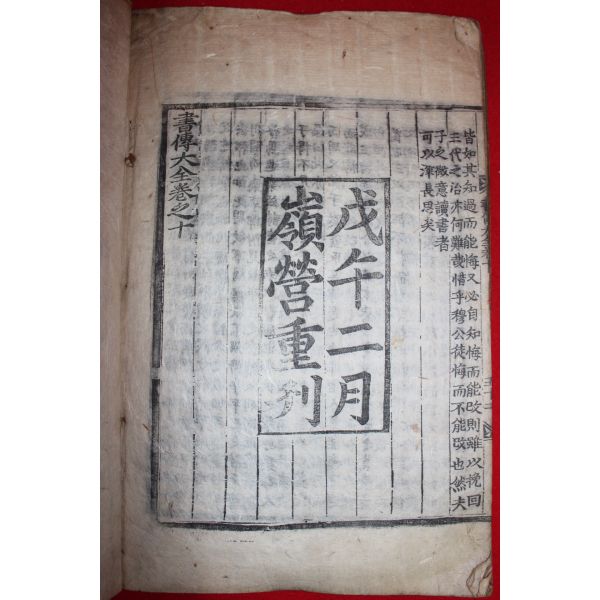 皆如其知過而能悔又必自知悔而能改則雖以挽回
三代之治亦何難哉惜乎穆公徒悔而不能改也然夫
子之微意讀書者
可以深長思矣
戊午二月
嶺營重刊
書傳大全卷之十